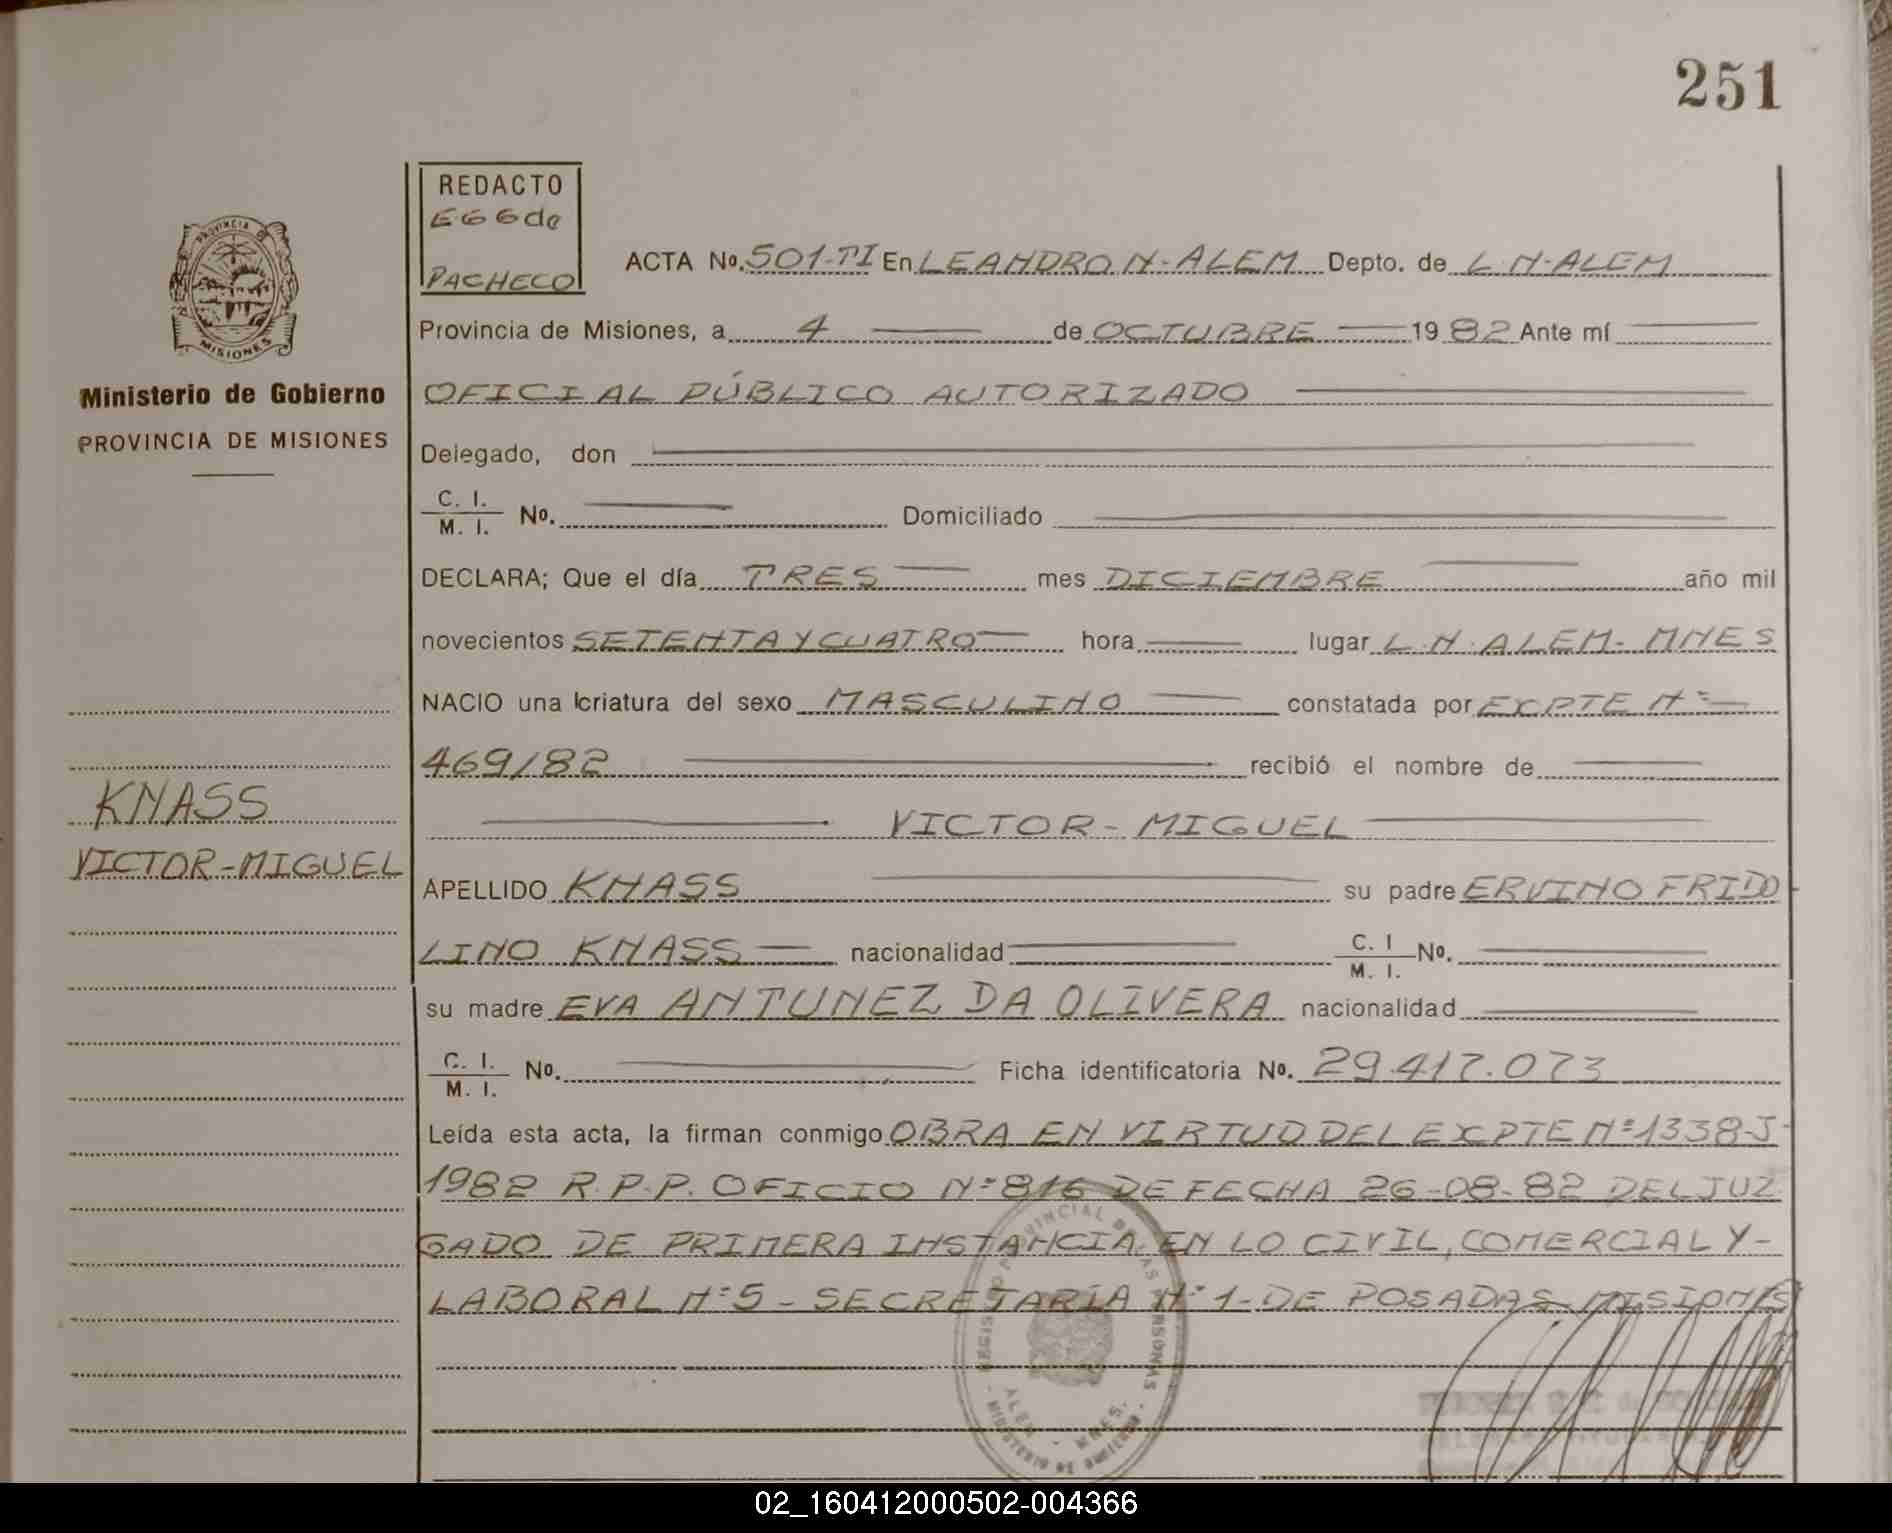 251
REDACTO
E G G de
PACHECO
PROVINCIA DE
MISIONES
Ministerio de Gobierno
PROVINCIA DE MISIONES
KNASS
VICTOR-MIGUEL
ACTA No. 501-TI En LEANDRO N-ALEM Depto. de L-N-ALEM
Provincia de Misiones, a 4 de OCTUBRE 1982 Ante mí
OFICIAL PÚBLICO AUTORIZADO
Delegado, don
C. I.
M. I. No. Domiciliado
DECLARA; Que el día TRES mes DICIEMBRE año mil
novecientos SETENTA Y CUATRO hora lugar L.N.ALEM-MNES
NACIO una criatura del sexo MASCULINO constatada por EXPTE Nº
469/82 recibió el nombre de
VICTOR-MIGUEL
APELLIDO KNASS su padre ERVINO FRIDO
LINO KNASS nacionalidad C. I M. I. No.
su madre EVA ANTUNEZ DA OLIVERA nacionalidad
C. I.
M. I. No. Ficha identificatoria No. 29.417.073
Leída esta acta, la firman conmigo OBRA EN VIRTUD DEL EXPTE Nº1338-J-
1982 R.P.P. OFICIO Nº816 DE FECHA 26-08-82 DEL JUZ
GADO DE PRIMERA INSTANCIA EN LO CIVIL, COMERCIAL Y-
LABORAL Nº5 - SECRETARÍA Nº1- DE POSADAS-MISIONES
REGISTRO PROVINCIAL DE LAS PERSONAS
ALEM - MNES.
MINISTERIO DE GOBIERNO
02_160412000502-004366